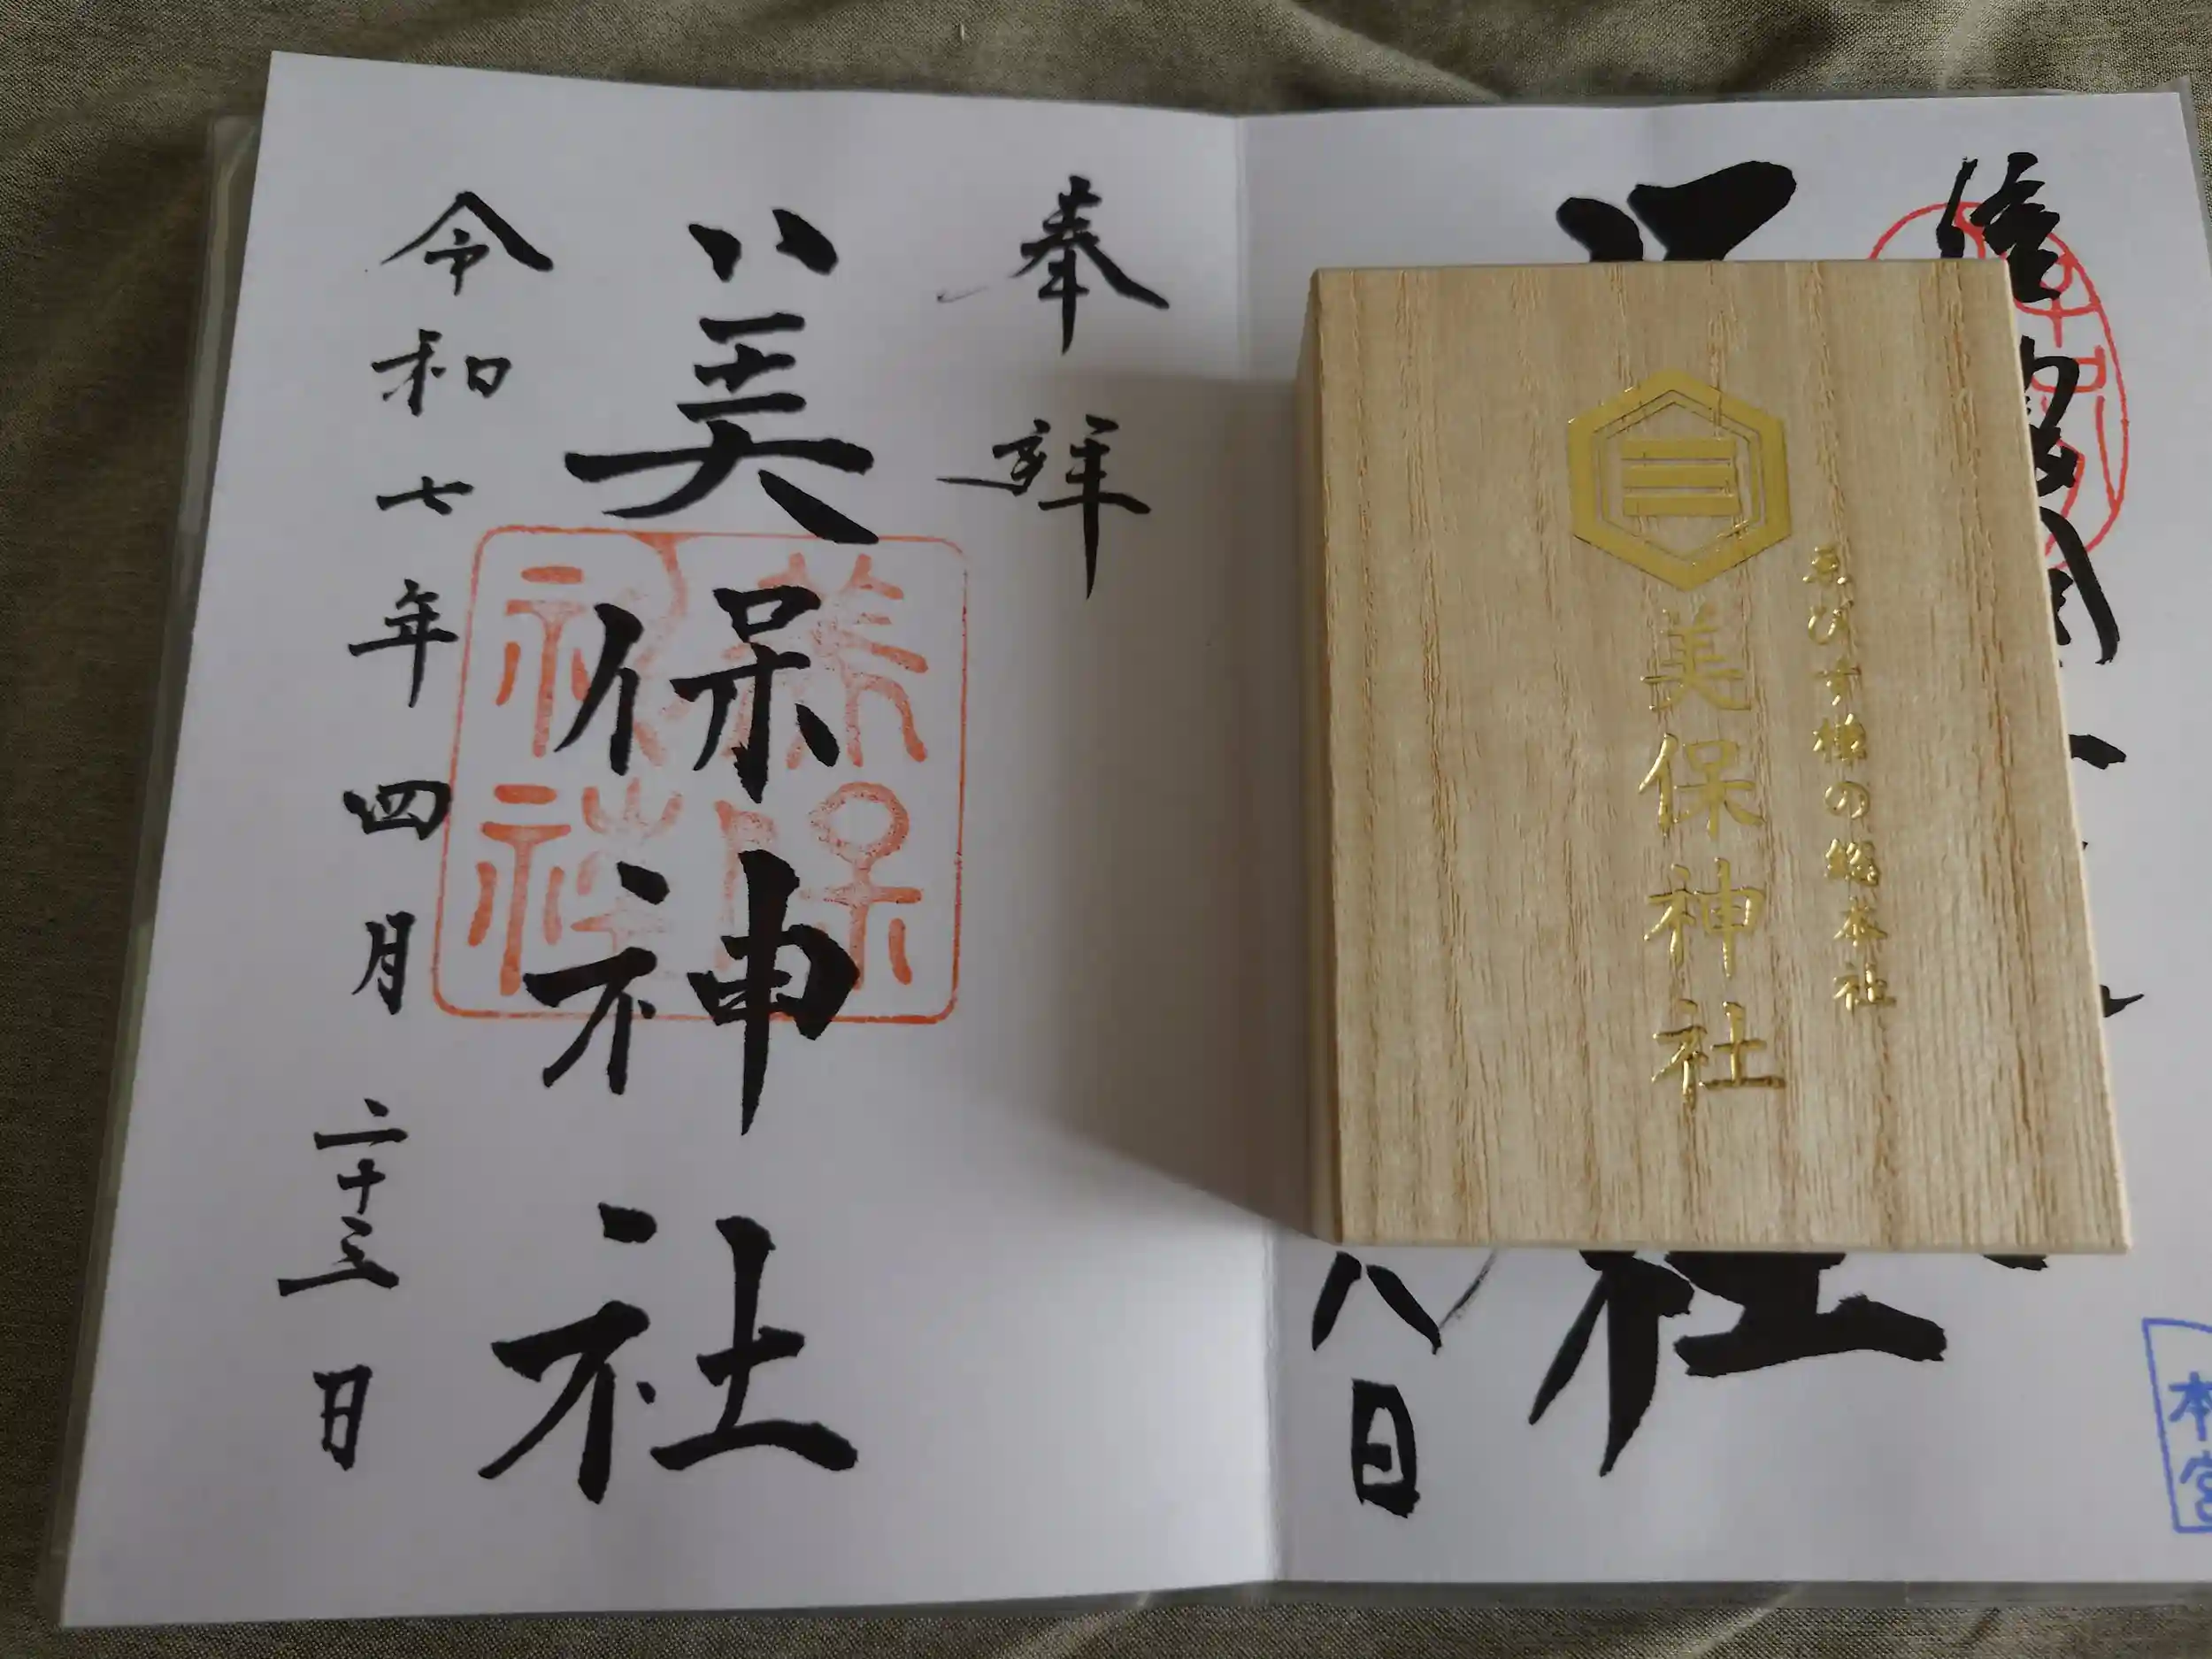 奉拝
美保神社
美保神社
令和七年四月二十三日
ゑびす様の総本社
美保神社
社
八日
本宮